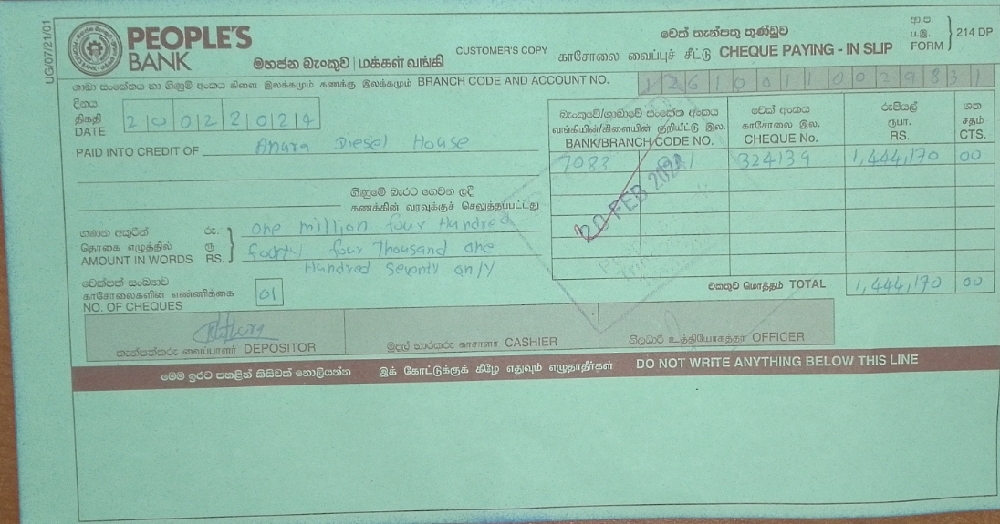 UG/07/21/01
PEOPLE'S
BANK
මහජන බැංකුව | மக்கள் வங்கி
CUSTOMER'S COPY
චෙක් තැන්පතු තුණ්ඩුව
காசோலை வைப்புச் சீட்டு CHEQUE PAYING - IN SLIP
FORM 214 DP
ශාඛා සංකේතය හා ගිණුම් අංකය கிளை இலக்கமும் கணக்கு இலக்கமும் BRANCH CODE AND ACCOUNT NO.
දිනය
திகதி
DATE 20022024
බැංකුවේ/ශාඛාවේ සංකේත අංකය
வங்கியின்/கிளையின் குறியீட்டு இல.
BANK/BRANCH/CODE NO.
චෙක් අංකය
காசோலை இல.
CHEQUE No.
රුපියල්
ரூபா.
RS.
ශත
சதம்
CTS.
PAID INTO CREDIT OF Anura Diesel House
324139 1,444,170 00
20 FEB
ගිණුමේ බැරට ගෙවන ලදී
கணக்கின் வரவுக்குச் செலுத்தப்பட்டது
ගණන අකුරින් රු.
தொகை எழுத்தில் ரூ
AMOUNT IN WORDS RS.
one million four Hundred
fourty four Thousand one
Hundred Seventy only
චෙක්පත් සංඛ්‍යාව
காசோலைகளின் எண்ணிக்கை
NO. OF CHEQUES 01
එකතුව மொத்தம் TOTAL 1,444,170 00
තැන්පත්කරු வைப்பாளர் DEPOSITOR
මුදල් භාරකරු காசாளர் CASHIER
නිලධාරී உத்தியோகத்தர் OFFICER
මෙම ඉරට පහළින් කිසිවක් නොලියන්න இக் கோட்டுக்குக் கீழே எதுவும் எழுதாதீர்கள் DO NOT WRITE ANYTHING BELOW THIS LINE